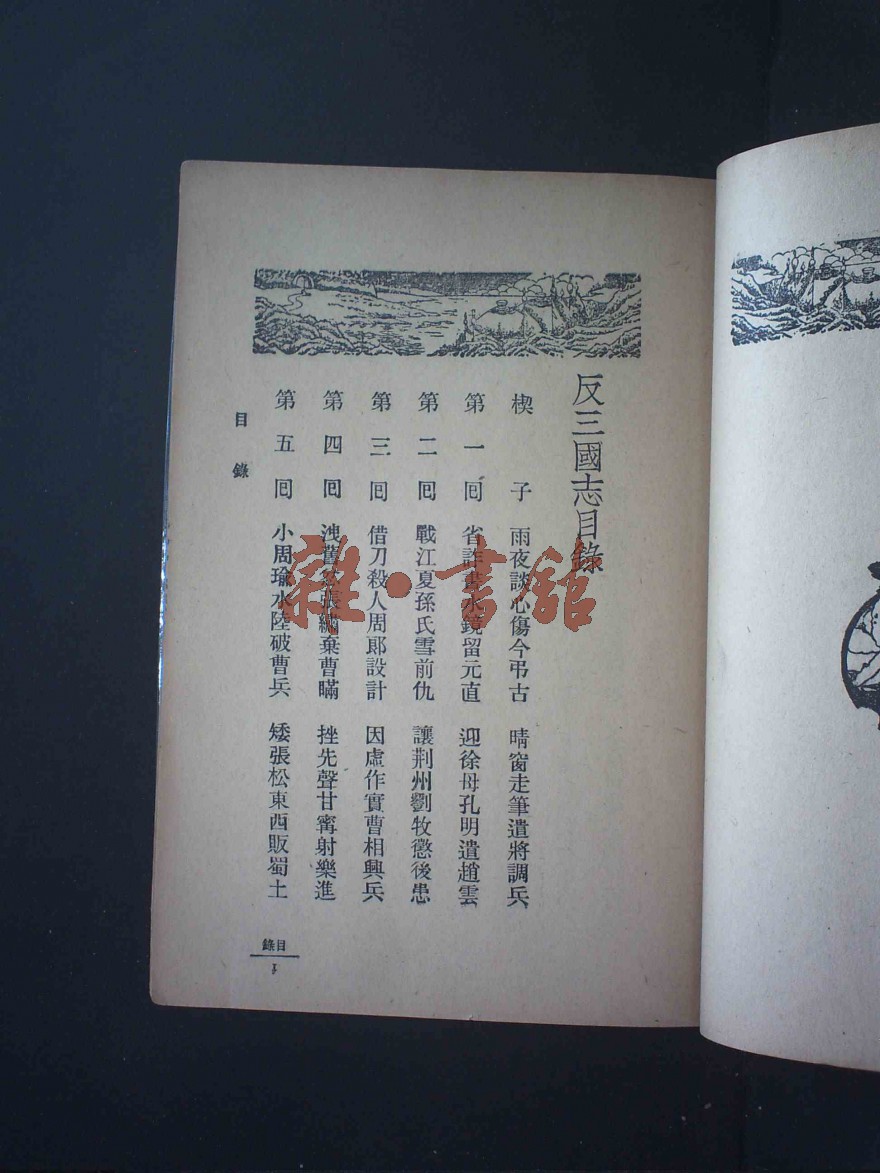 反三國志目錄
楔子 雨夜談心傷今弔古 晴窗走筆遣將調兵
第一囘 省詐書水鏡留元直 迎徐母孔明遣趙雲
第二囘 戰江夏孫氏雪前仇 讓荆州劉牧懲後患
第三囘 借刀殺人周郞設計 因虛作實曹相興兵
第四囘 洩舊張繡棄曹瞞 挫先聲甘寗射樂進
第五囘 小周瑜水陸破曹兵 矮張松東西販蜀土
目錄
目錄
雜·書館